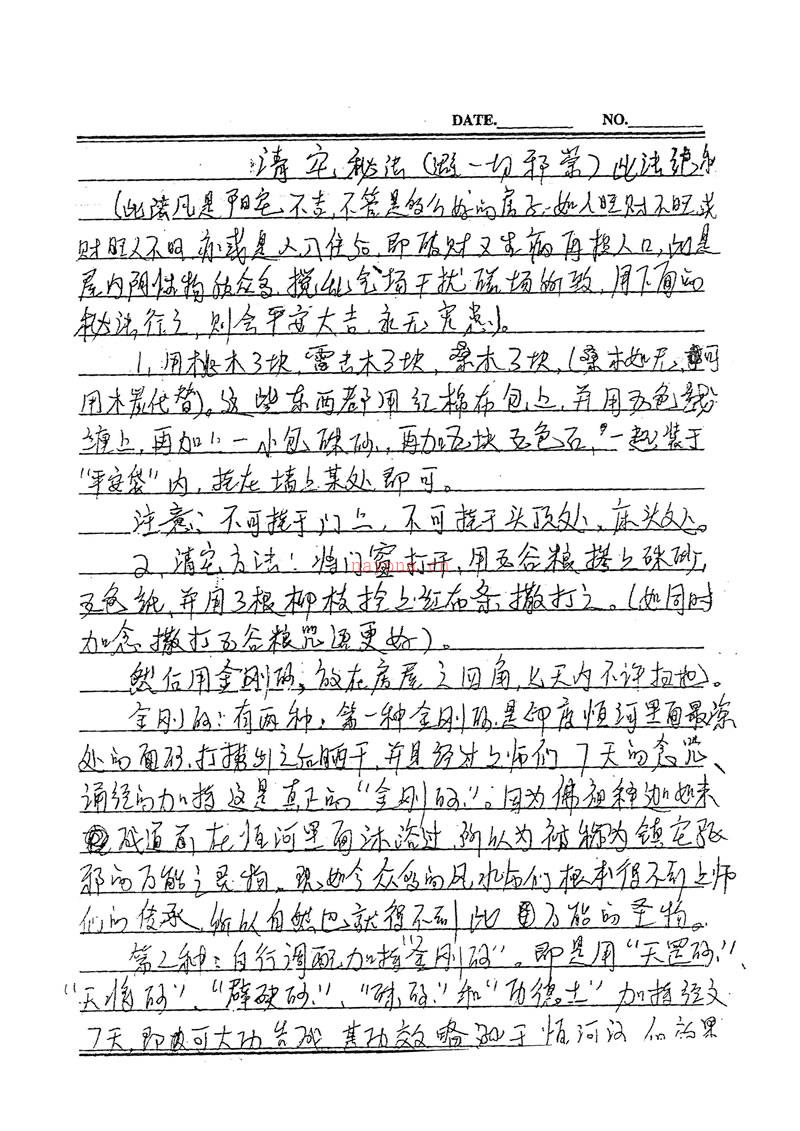 DATE. NO.
清宅秘法(避一切邪祟)此法绝
(此法凡是阳宅不吉,不管是多么好的房子:如人旺财不旺或
财旺人不旺,亦或是入住后,即破财又生病再损人口,均是
屋内阴性物质众多,搅乱气场干扰磁场所致,用下面的
秘法行之,则会平安大吉,永无灾患)。
1,用桃木3块,雷击木3块,桑木3块,(桑木如无,可
用木炭代替)。这些东西都用红棉布包上,并用五色线
缠上,再加上一小包硃砂,再加五块五色石,一起装于
“平安袋”内,挂在墙上某处即可。
注意:不可挂于门上,不可挂于头顶处、床头处。
2,清宅方法:将门窗打开,用五谷粮拌上硃砂,
五色纸,并用3根柳枝拴上红布条,撒打之。(如同时
加念撒打五谷粮咒语更好)。
nayona.cn
然后用金刚砂,放在房屋之四角,七天内不许扫地)。
金刚砂:有两种,第一种金刚砂是印度恒河里面最深
处的面砂,打捞出之后晒干,并且经过上师们7天的念咒、
诵经的加持这是真正的“金刚砂”。因为佛祖释迦如来
成道前在恒河里面沐浴过,所以为被称为镇宅驱
邪的万能之灵物。现如今众多的风水师们根本得不到上师
们的传承,所以自然也就得不到此万能的圣物。
第二种:自行调配加持“金刚砂”。即是用“天罡砂”、
“天将砂”、“辟硤砂”、“硃砂”和“功德土”加持经文
7天,即可大功告成,其功效略逊于恒河沙的效果